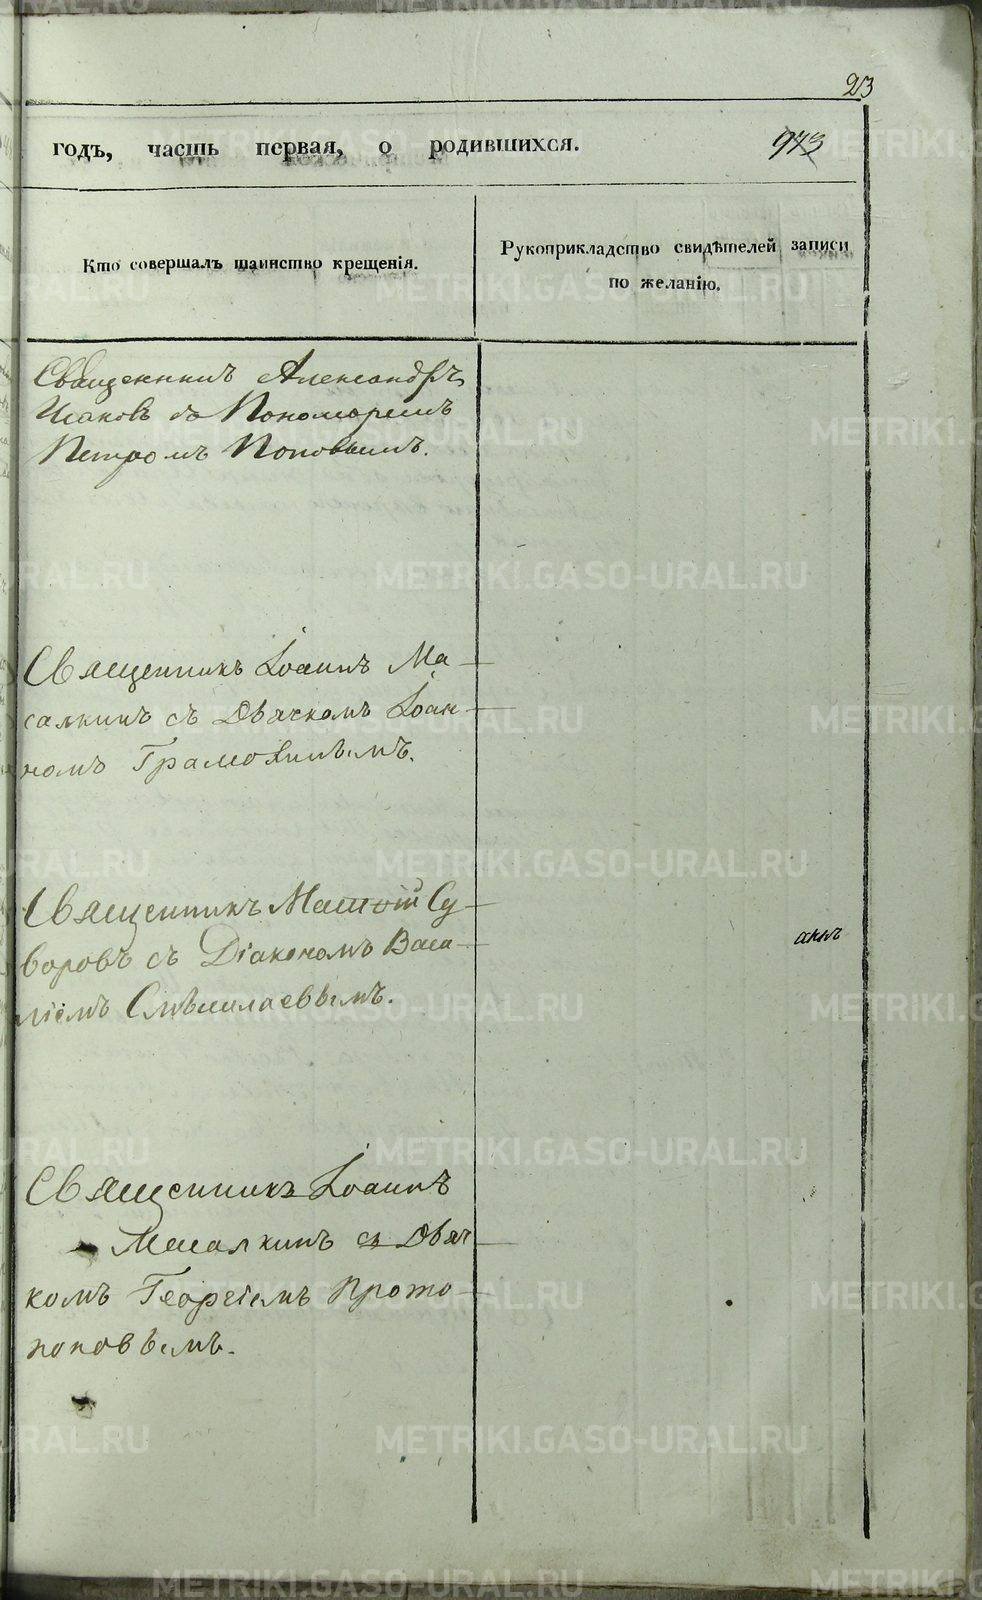 23
годъ, часть первая, о родившихся. 973
Кто совершалъ таинство крещенія.
Рукоприкладство свидѣтелей записи
по желанію.
Священникъ Александръ
Исаковъ со Пономаремъ
Петромъ Поповымъ.
Священникъ Іоаннъ Ма-
салкинъ съ Дьячкомъ Іоан-
номъ Грамолинымъ.
Священникъ Матѳій Су-
воровъ съ Діакономъ Васи-
ліемъ
Священникъ Іоаннъ
Масалкинъ съ Дьяч
комъ Георгіемъ Прото-
поповымъ.
METRIKI.GASO-URAL.RU